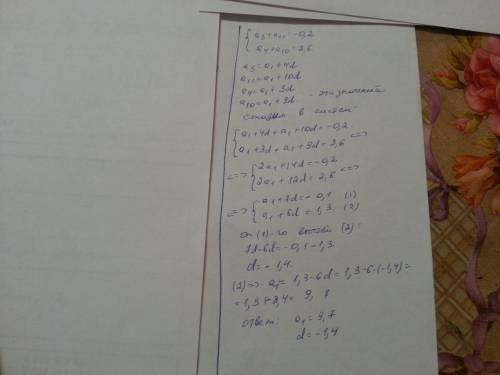 { a₅+a₁₁=-0,2
a₄+a₁₀=2,6
a₅=a₁+4d
a₁₁=a₁+10d
a₄=a₁+3d
a₁₀=a₁+9d - эти значения
ставим в систем.
{ a₁+4d+a₁+10d=-0,2
a₁+3d+a₁+9d=2,6 <=>
<=> { 2a₁+14d=-0,2
2a₁+12d=2,6 <=>
<=> { a₁+7d=-0,1 (1)
a₁+6d=1,3 (2)
От (1)-го вычтем (2):
7d-6d=-0,1-1,3
d=-1,4.
(2)=> a₁=1,3-6d=1,3-6·(-1,4)=
=1,3+8,4=9,7
ответ: a₁=9,7
d=-1,4